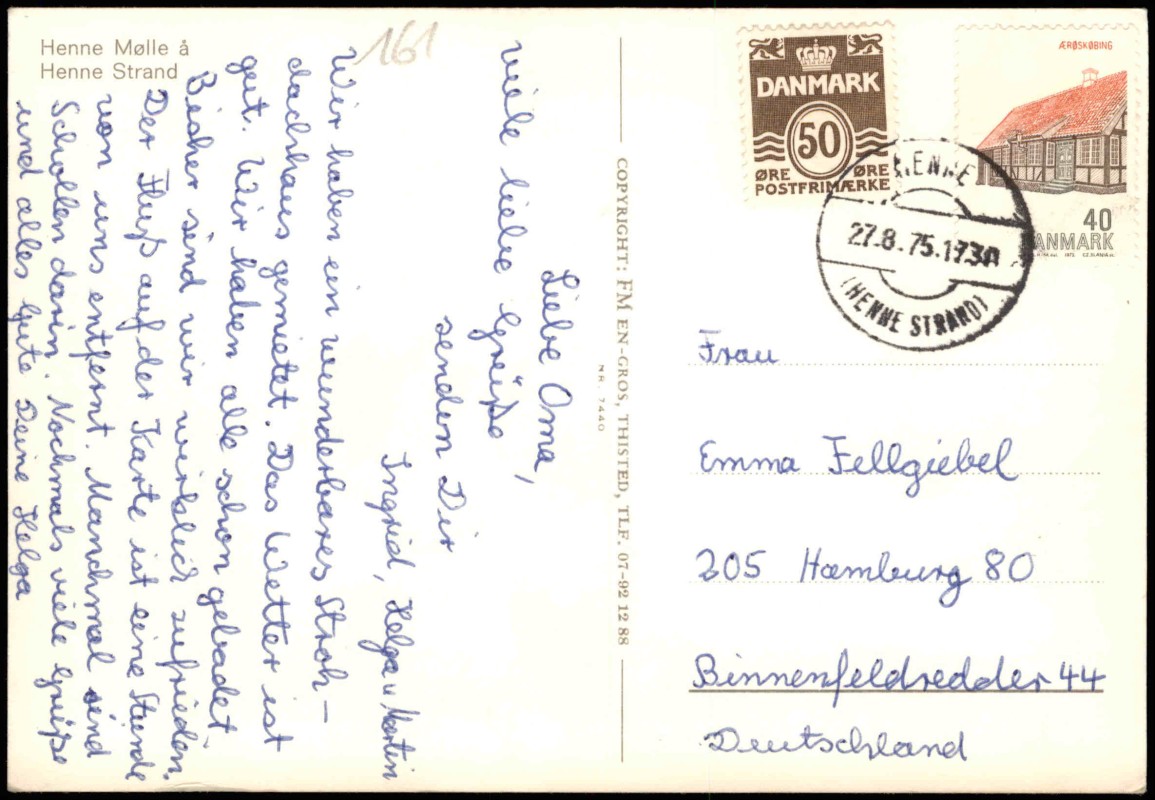 Henne Mølle å
Henne Strand
161
Liebe Oma,
viele liebe Grüße
senden Dir
Ingrid, Helga u Martin
Wir haben ein wunderbares Stroh-
dachhaus gemietet. Das Wetter ist
gut. Wir haben alle schon gebadet.
Bisher sind wir wirklich zufrieden.
Der Fluß auf der Karte ist eine Stunde
von uns entfernt. Manchmal sind
Schollen darin. Nochmals viele Grüße
und alles Gute Deine Helga
COPYRIGHT: FM EN-GROS, THISTED, TLF. 07-92 12 88
NR. 7440
DANMARK
50
ØRE ØRE
POSTFRIMÆRKE
ÆRØSKØBING
40
DANMARK
HENNE
27.8.75.1730
(HENNE STRAND)
Frau
Emma Fellgiebel
205 Hamburg 80
Binnenfeldredder 44
Deutschland